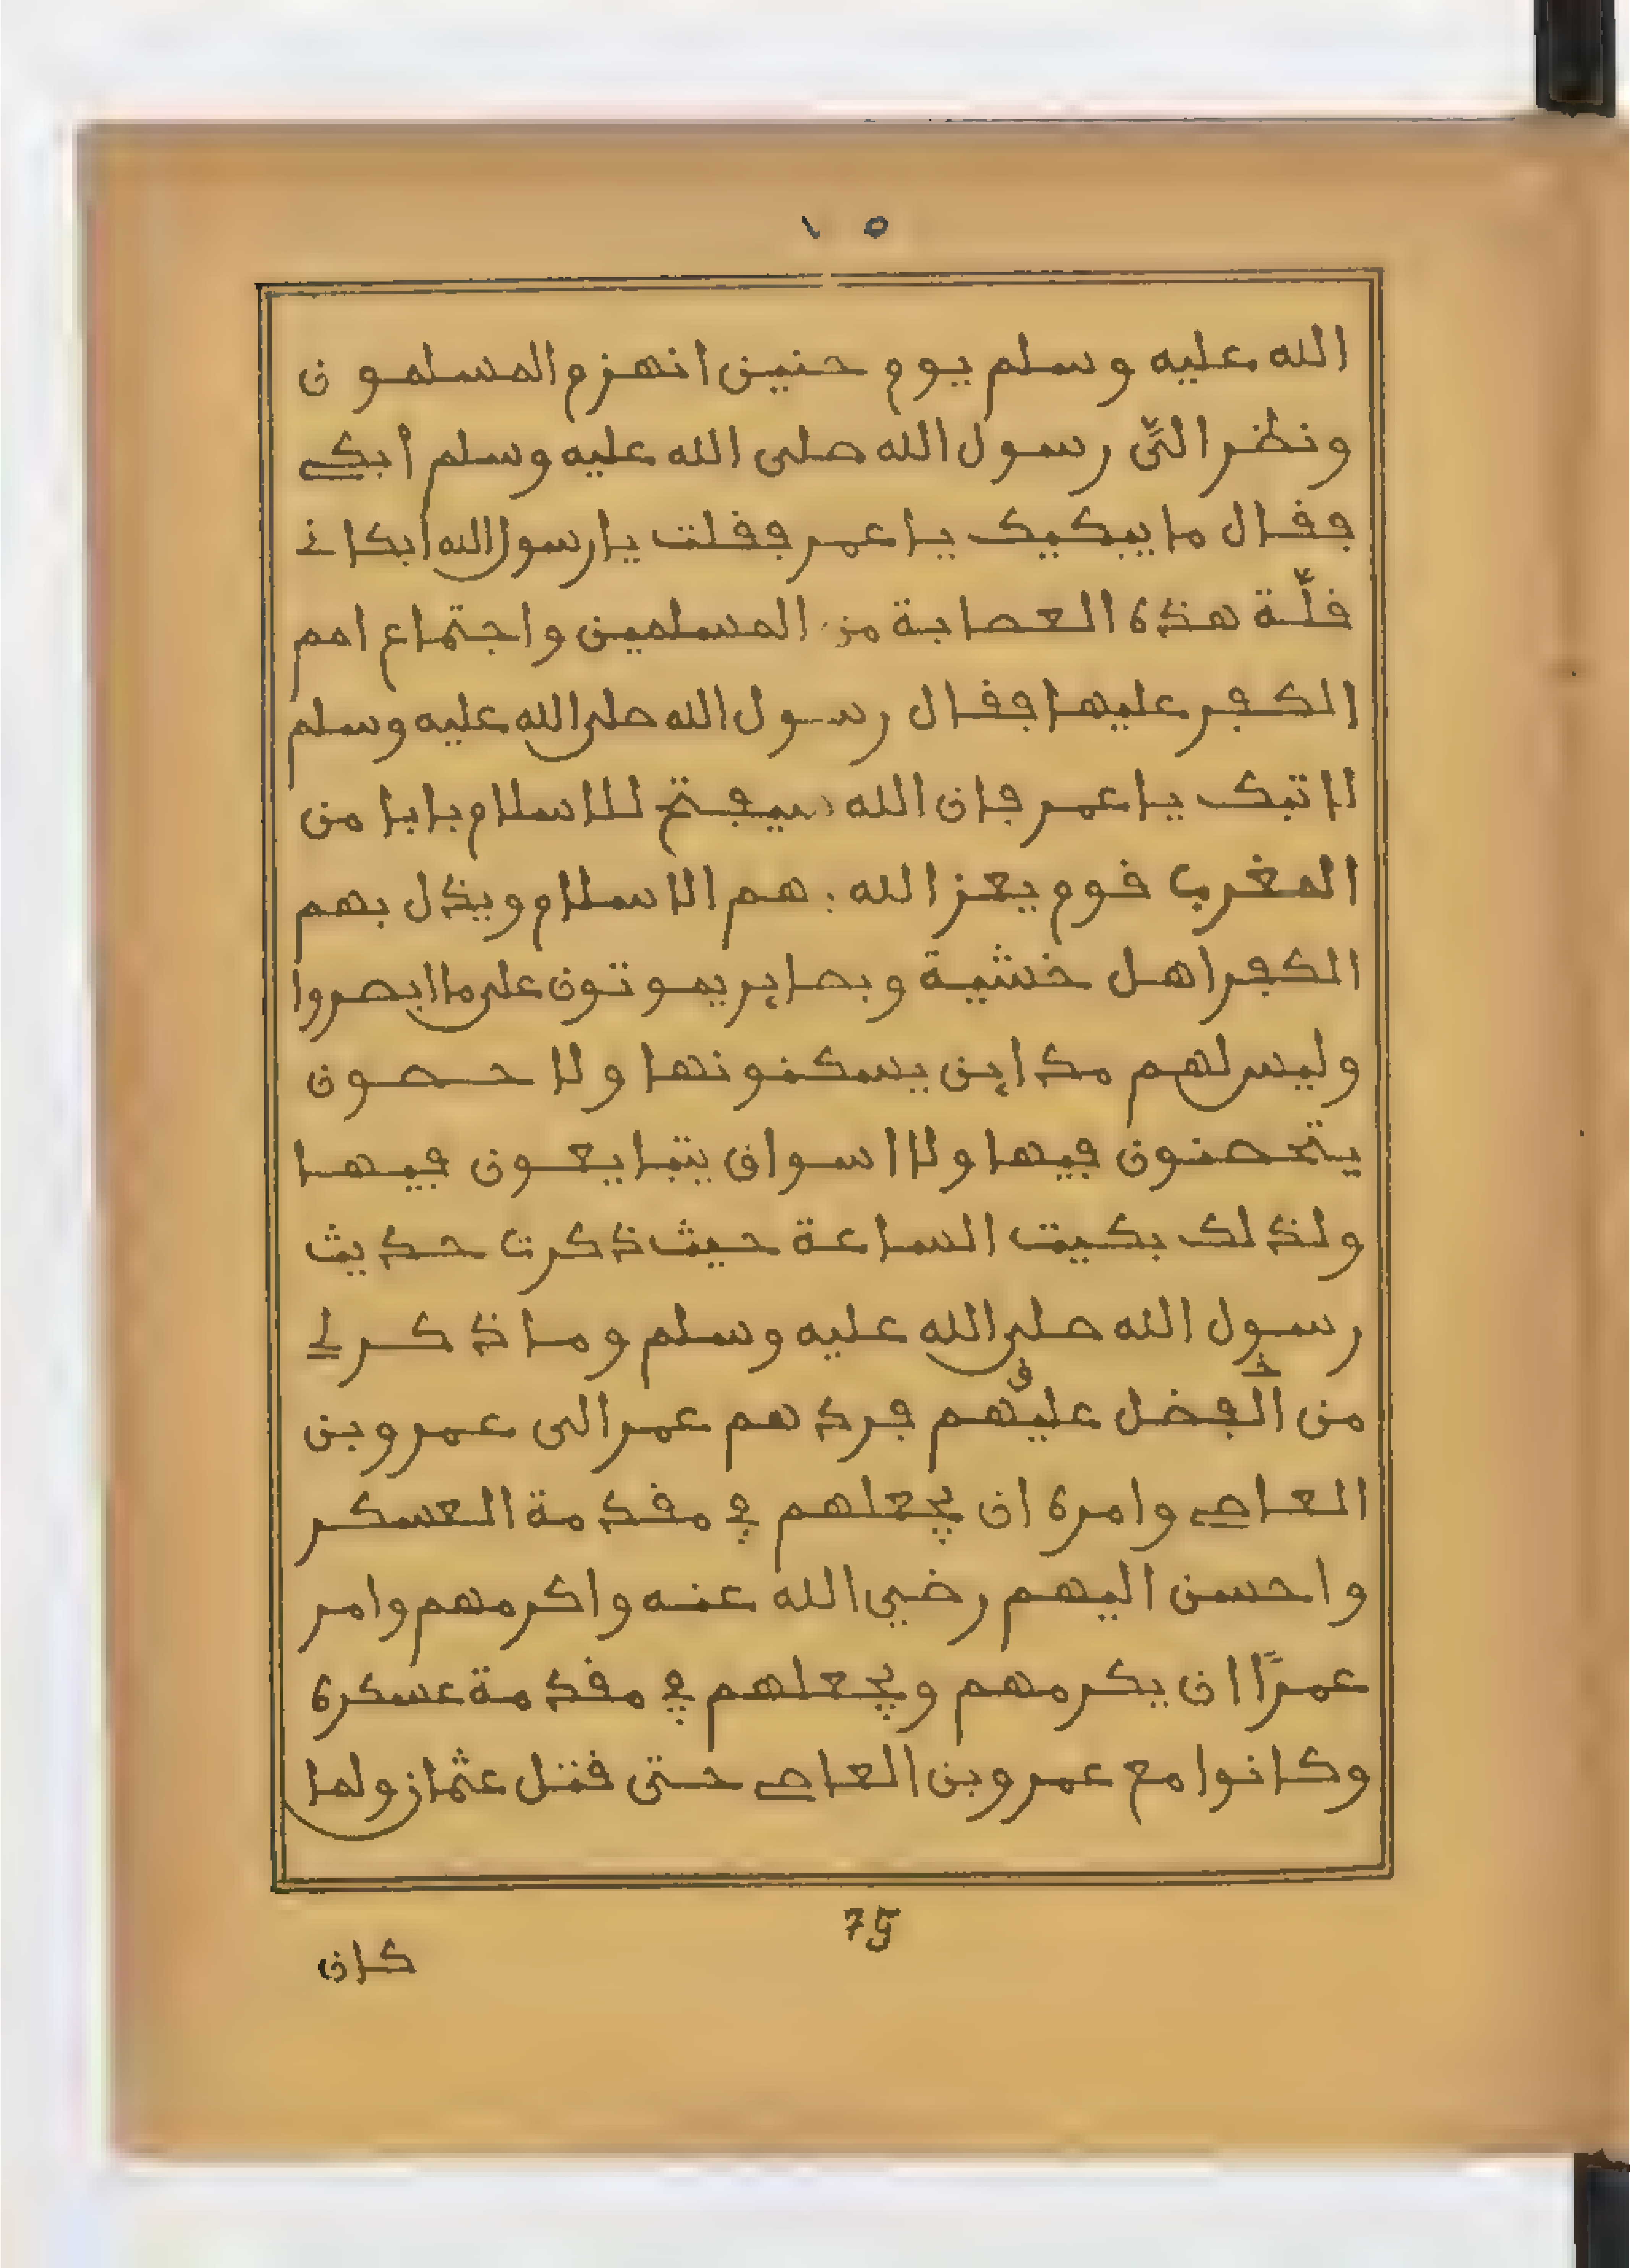 ١٥
الله عليه وسلم يوم حنين انهزم المسلمون
ونظر اليّ رسول الله صلى الله عليه وسلم أبكي
فقال ما يبكيك يا عمر فقلت يا رسول الله ابكاني
قلّة هذه العصابة من المسلمين واجتماع امم
الكفر عليها فقال رسول الله صلى الله عليه وسلم
لا تبك يا عمر فان الله سيفتح للاسلام بابا من
المغرب قوم يعز الله بهم الاسلام ويذل بهم
الكفر اهل خشية وبصاير يموتون على ما ابصروا
وليس لهم مداين يسكنونها ولا حصون
يتحصنون فيها ولا اسواق يتبايعون فيها
ولذلك بكيت الساعة حيث ذكرت حديث
رسول الله صلى الله عليه وسلم وما ذكر لي
من الفضل عليهم فردهم عمر الى عمرو بن
العاصي وامره ان يجعلهم في مقدمة العسكر
واحسن اليهم رضي الله عنه واكرمهم وامر
عمرًا ان يكرمهم ويجعلهم في مقدمة عسكره
وكانوا مع عمرو بن العاصي حتى قتل عثمان ولما
75
كان